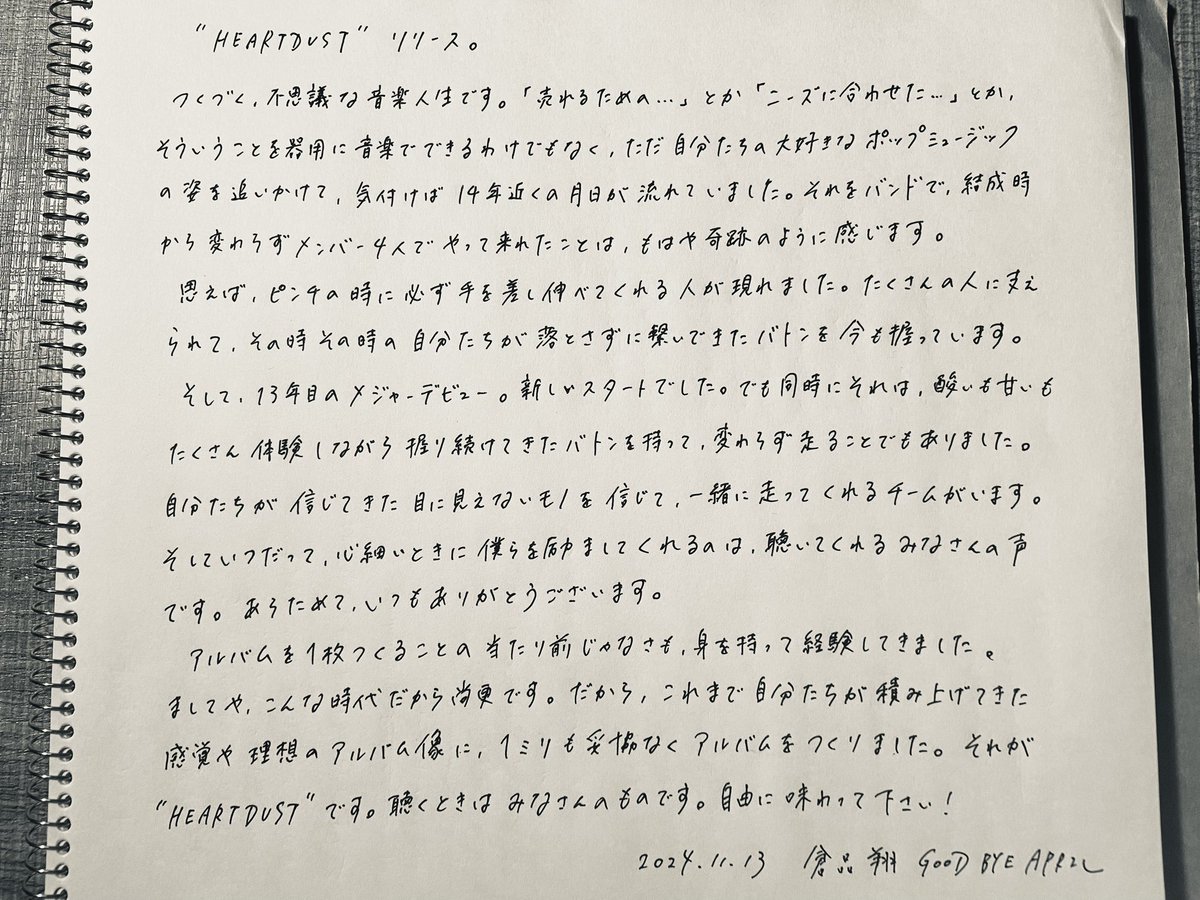 "HEARTDUST" リリース。
つくづく、不思議な音楽人生です。「売れるための…」とか「ニーズに合わせた…」とか、
そういうことを器用に音楽でできるわけでもなく、ただ自分たちの大好きなポップミュージック
の姿を追いかけて、気付けば14年近くの月日が流れていました。それをバンドで、結成時
から変わらずメンバー4人でやって来れたことは、もはや奇跡のように感じます。
思えば、ピンチの時に必ず手を差し伸べてくれる人が現れました。たくさんの人に支え
られて、その時その時の自分たちが落とさずに繋いできたバトンを今も握っています。
そして、13年目のメジャーデビュー。新しいスタートでした。でも同時にそれは、酸いも甘いも
たくさん体験しながら握り続けてきたバトンを持って、変わらず走ることでもありました。
自分たちが信じてきた目に見えないモノを信じて、一緒に走ってくれるチームがいます。
そしていつだって、心細いときに僕らを励ましてくれるのは、聴いてくれるみなさんの声
です。あらためて、いつもありがとうございます。
アルバムを1枚つくることの当たり前じゃなさも、身を持って経験してきました。
ましてや、こんな時代だから尚更です。だから、これまで自分たちが積み上げてきた
感覚や理想のアルバム像に、1ミリも妥協なくアルバムをつくりました。それが
"HEARTDUST"です。聴くときはみなさんのものです。自由に味わって下さい!
2024.11.13 倉品翔 GOOD BYE APRIL